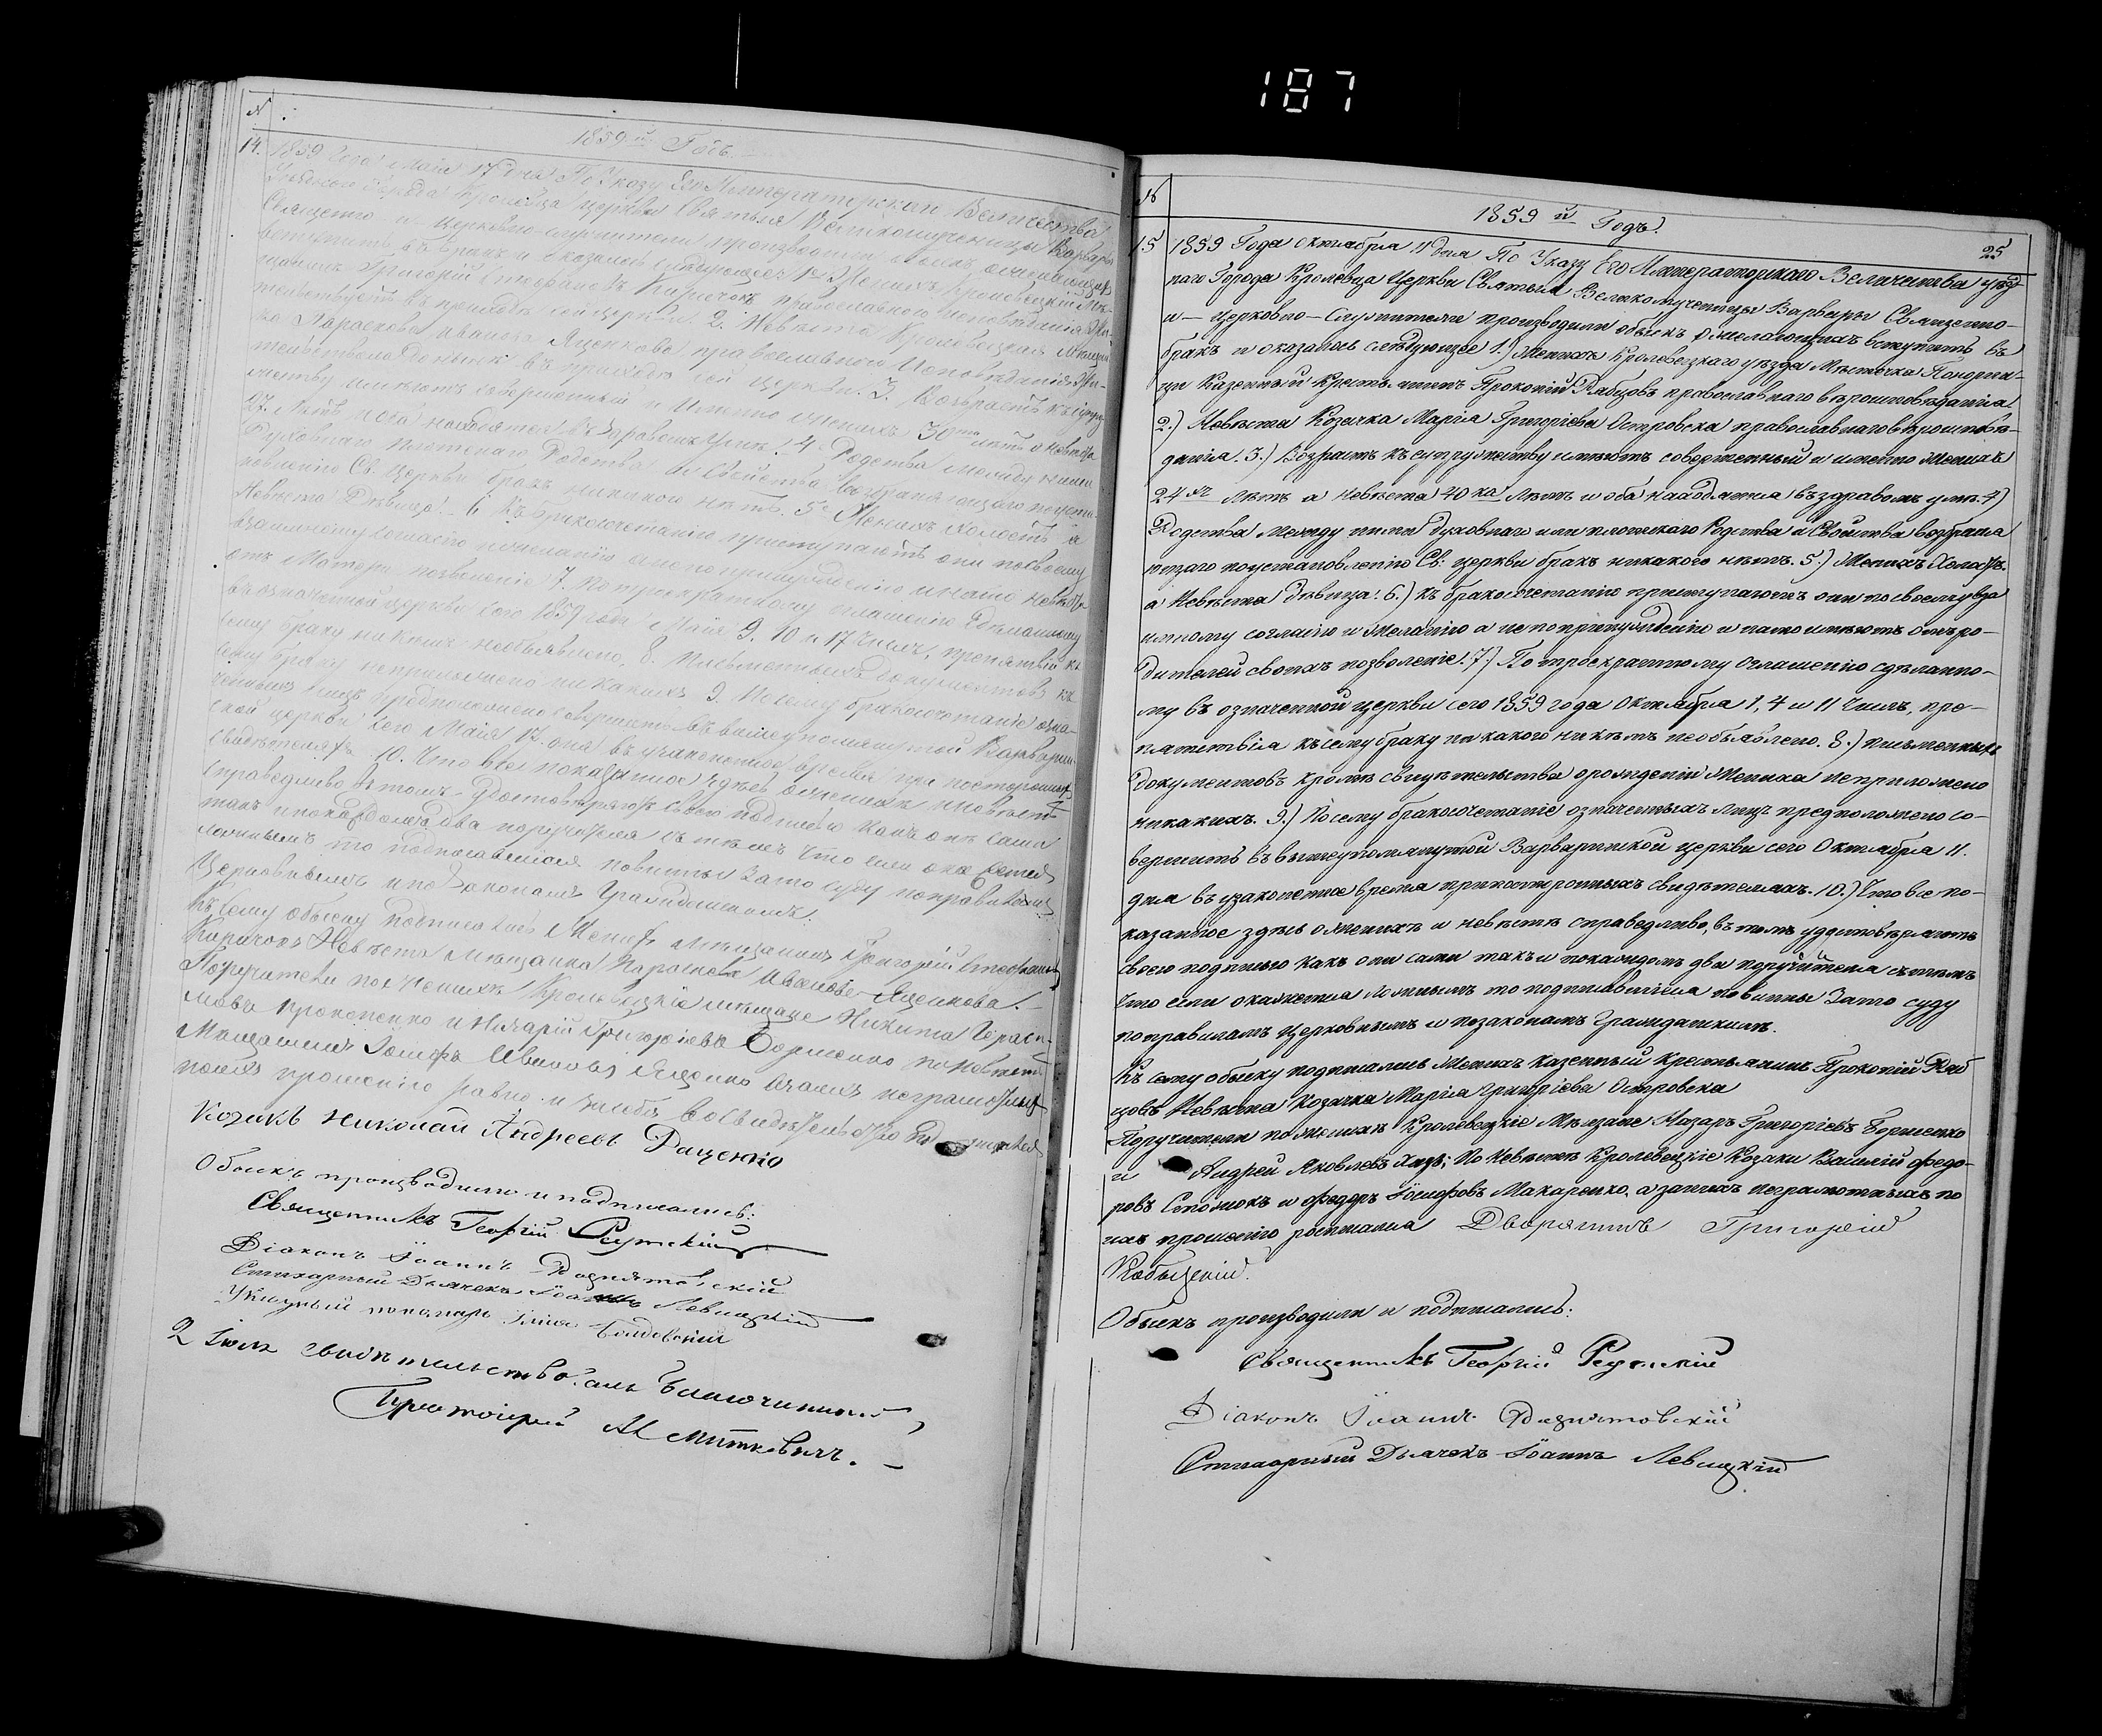 187
№
1859 й Годъ.
14. 1859 Года Мая 17 дня По Указу Его Императорскаго Величества
Уезднаго Города Кролевца церкви Святыя Великомученицы Варвары
Священно и церковно-служители производили обыскъ о желающихъ
вступить въ бракъ и оказалось следующее: 1е Женихъ Кролевецкій Мѣ-
щанинъ Григорій Стефановъ Киричокъ православнаго исповѣданія Жи-
тельствуетъ въ приходѣ сей церкви. 2. Невѣста Кролевецкая Мѣщан-
ка Параскева Иванова Яценкова православнаго Исповѣданія Жи-
тельствовала донынѣ въ приходѣ сей церкви. 3. Возрастъ къ супру-
жеству имеютъ совершенный и Именно женихъ 30 лѣтъ а невѣста
27. Лѣтъ и оба находятся въ здравомъ умѣ. 4. Родства между ними
Духовнаго плотскаго Родства и Свойства возбраняющаго по уста-
новленію Св. Церкви бракъ никакого нѣтъ. 5е Женихъ холостъ а
Невѣста Дѣвица. 6 Къ бракосочетанію приступаютъ они по своему
взаимному согласію и желанію а не по принужденію и на то невѣста
отъ Матери позволеніе 7. По троекратному оглашенію сделанному
въ означенной церкви сего 1859 года Мая 9. 10 и 17 Числъ, препятствія къ
сему браку никѣмъ необъявлено. 8. Письменныхъ документовъ къ
сему браку неприложено никакихъ 9. По сему бракосочетаніе озна-
ченныхъ лицъ предположено совершить въ вышеупомянутой Варварин-
ской церкви сего Мая 17. дня въ узаконенное время при постороннихъ
свидѣтеляхъ 10. Что все показанное здѣсь о женихѣ и невѣстѣ
справедливо въ томъ удостовѣряютъ своею подписью какъ они сами
такъ и по каждомъ два поручителя съ тѣмъ что если что окажется
ложнымъ то подписавшіеся повинны за то суду по правиламъ
Церковнымъ и по законамъ Гражданскимъ.
Къ сему обыску подписались Женихъ мѣщанинъ Григорій Стефановъ
Киричокъ Невѣста мѣщанка Параскева Иванова Яценкова.
Поручители по женихѣ Кролевецкіе мѣщане Никита Гераси-
мовъ Прокопенко и Назарій Григорьевъ Борисенко по невѣстѣ
Мещанинъ Іосифъ Ивановъ Яценко
Козакъ Николай Андреевъ Даценко
Обыскъ производили и подписались:
Священникъ Георгій
Діаконъ Іоаннъ
Стихарный Дьячекъ Іоаннъ Левицкій
Указный пономарь
2 Іюля свидѣтельствовалъ Благочинный
Протоіерей
№
1859 й Годъ.
25
15 1859 Года октября 11 дня По Указу Его Императорскаго Величества уѣзд-
наго Города Кролевца Церкви Святыя Великомученицы Варвары Священно-
и – церковно – Служители производили обыскъ о желающихъ вступить въ
бракъ и оказалось слѣдующее 1.) Женихъ Кролевецкаго уѣзда Мѣстечка Понорни-
цы Казенный Крестьянинъ Прокопій Рябцовъ православнаго вѣроисповѣданія
2.) Невѣста Козачка Марія Григоріева Островска православнаго вѣроисповѣ-
данія. 3.) Возрастъ къ супружеству имѣютъ совершенный и имено Женихъ
24 хъ Лѣтъ а невѣста 40 ка Лѣтъ и оба находятся въ здравомъ умѣ. 4)
Родства Между ними духовнаго или плотскаго Родства и Свойства возбраня
ющаго по установленію Св: церкви бракъ никакого нѣтъ. 5.) Женихъ Холостъ.
а Невѣста дѣвица. 6.) къ бракосочетанію приступаютъ они по своему вза
имному согласію и желанію а не по принужденію и на то имѣютъ отъ ро-
дителей своихъ позволеніе. 7.) По троекратному Оглашенію сдѣланно-
му въ означенной церкви сего 1859 года Октября 1, 4 и 11 Числъ, пре-
пятствія къ сему браку ни какого никѣмъ необъявлено. 8.) письменныхъ
документовъ кромѣ свидѣтельства о рожденіи Жениха неприложено
никакихъ. 9.) По сему бракосочетаніе означенныхъ лицъ предположено со-
вершить въ вышеупомянутой Варваринской церкви сего Октября 11.
дня въ узаконенное время при постороннихъ свидѣтеляхъ. 10.) Что все по-
казанное здѣсь о женихѣ и невѣстѣ справедливо, въ томъ удостовѣряютъ
своею подписью какъ они сами такъ и по каждомъ два поручителя съ тѣмъ
что если окажется ложнымъ то подписавшіеся повинны за то суду
по правиламъ церковнымъ и по законамъ Гражданскимъ.
Къ сему обыску подписались Женихъ казенный Крестьянинъ Прокопій Ряб
цовъ Невѣста Козачка Марія Григоріева Островска
Поручители по женихѣ Кролевецкіе Мѣщане Назаръ Григоріевъ Борисенко
и Андрей Яковлевъ; По невѣстѣ Кролевецкіе Козаки Василій Федо-
ровъ и Федоръ Іосифовъ Макаренко, а за нихъ неграмотныхъ по
ихъ прошенію росписался Дворянинъ Григорій
Кобыцкій.
Обыскъ производили и подписались:
Священникъ Георгій
Діаконъ Іоаннъ
Стихарный Дьячекъ Іоаннъ Левицкій